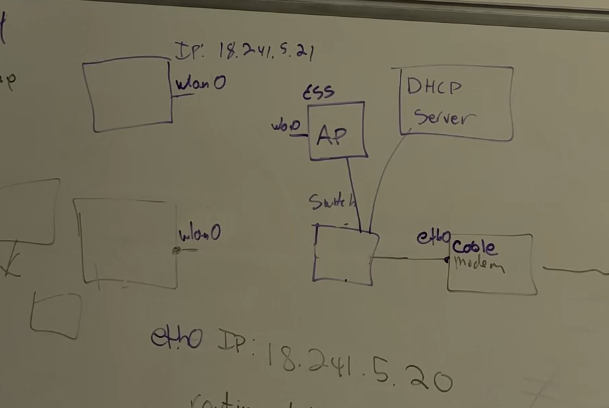 IP: 18.241.5.21
wlan0
ESS
wlan0
AP
DHCP
Server
Switch
wlan0
eth0
Cable
modem
eth0 IP: 18.241.5.20